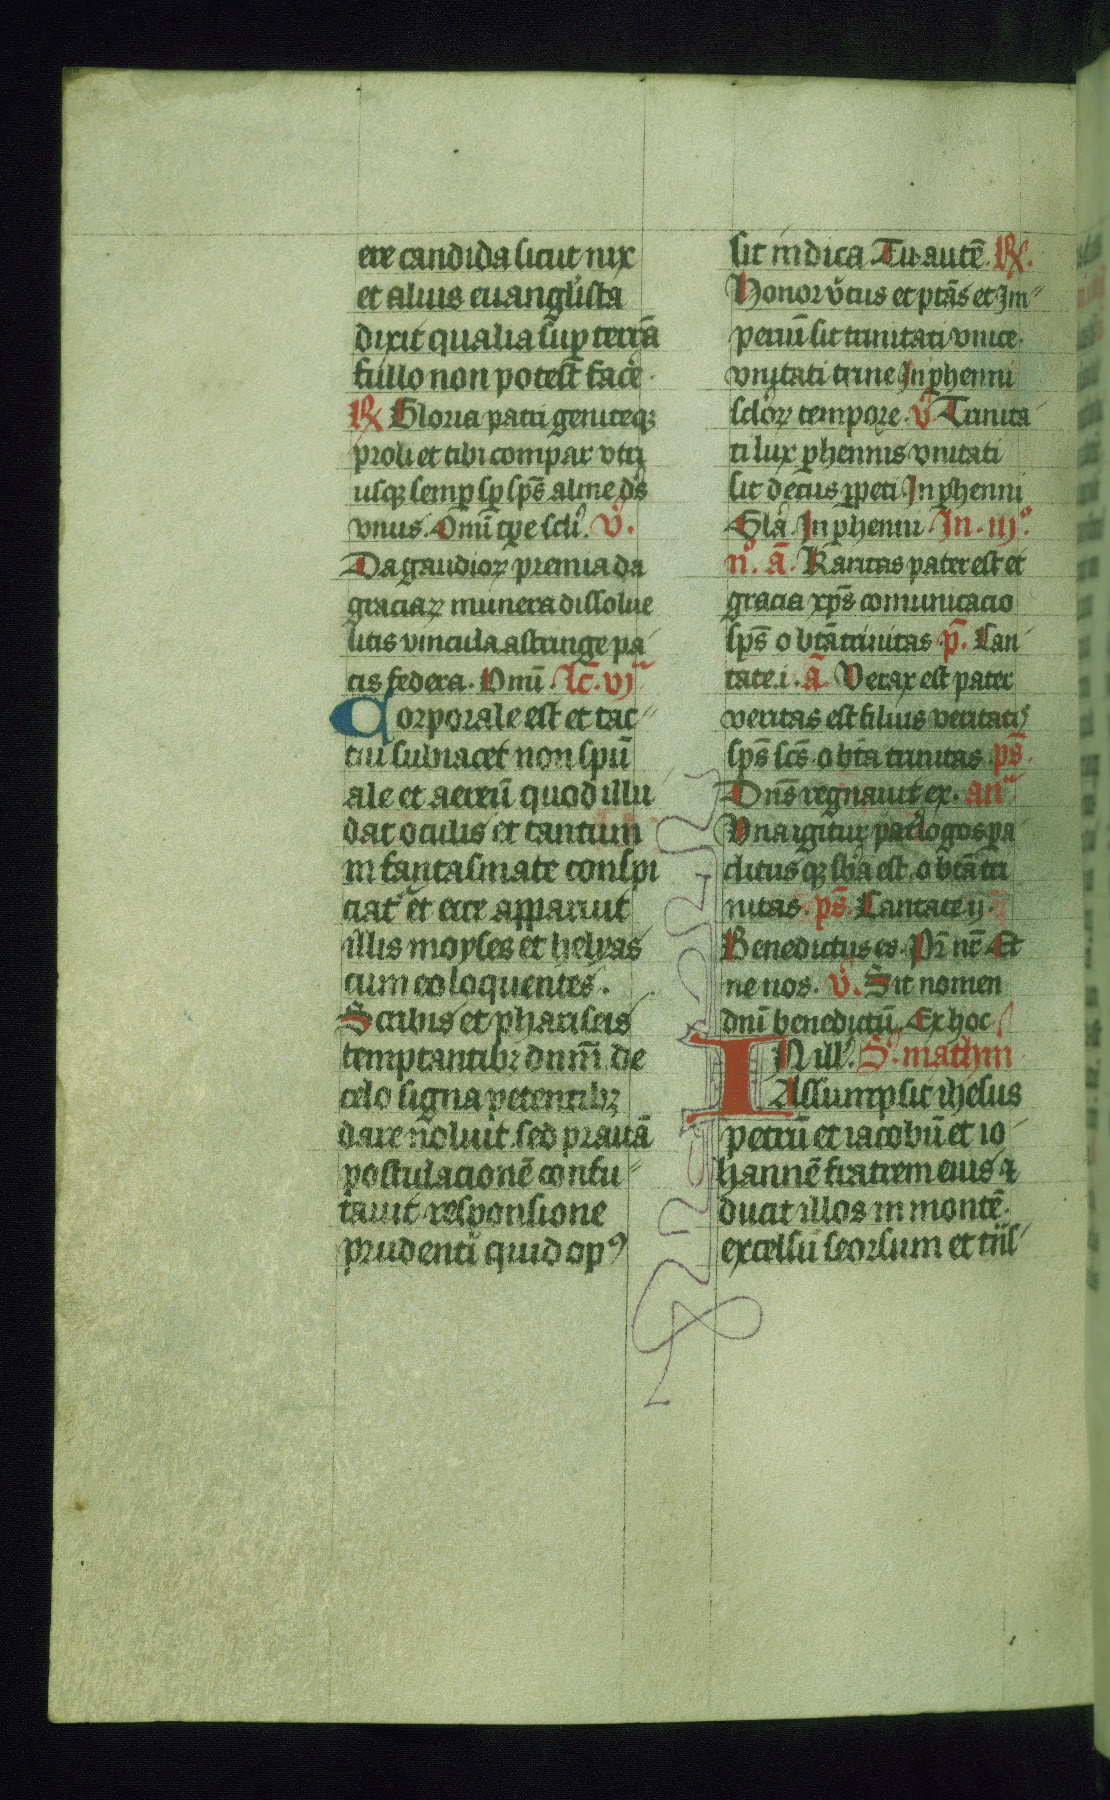 ere candida sicut nix
et alius euangl'ista
dixit qualia sup̱ terrā
fullo non potest fac̄e.
℟ Gloria patri geniteqꝫ
proli et tibi compar vtri
usqꝫ semꝑ sp̄ sp̄s alme dṡ
vnus. Omī tꝑe scl'i. v̊.
Da gaudioꝝ premia da
graciaꝝ munera dissolue
litis vincula astringe pa
cis federa. Omī. lc̄. vj
Corporale est et tac
tui subiacet non spū
ale et aereū quod illu
dat oculis et tantum
in fantasmate conspi
ciat᷑ et ecce apparuit
illis moyses et helyas
cum eo loquentes.
Scribis et phariseis
temptantibꝫ dnm̄ de
celo signa petentibꝫ
dare noluit sed prauā
postulacionē confu
tauit responsione
prudenti quid opꝰ
sit iudica Tu autē. ℟.
Honor v̊tus et ptās et Im
periū sit trinitati vnice.
vnitati trine In ꝑhenni
scl'oꝝ tempore. v̊ Trinita
ti lux ꝑhennis vnitati
sit decus ꝑpeti In ꝑhenni
Gl'a In ꝑhenni In. iij̊.
n̊. ā. Karitas pater est et
gracia xp̄s comunicacio
sp̄s o btā trinitas p̄. Can
tate. i. ā Verax est pater
veritas est filius veritatis
sp̄s sc̄s o btā trinitas ps̄.
Dn̄s regnauit ex. an
Vna igitur pat̊ logos pa
clitusqꝫ sbā est o btā tri
nitas. ps̄. Cantate ij.
Benedictus es. Pr̄ nr̄ Et
ne nos. v̊. Sit nomen
dn̄i benedictū Ex hoc
IN ill'. S. math'm
Assumpsit ihesus
petrū et iacobū et io
hannē fratrem eius ⁊
ducit illos in montē
excelsū seorsum et tn̄s